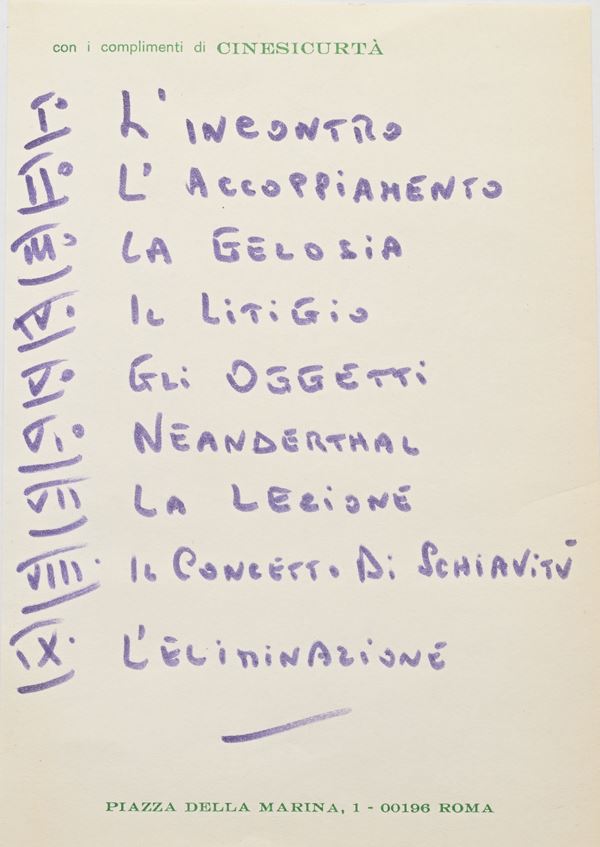 con i complimenti di CINESICURTÀ
I° L'INCONTRO
II° L'ACCOPPIAMENTO
III° LA GELOSIA
IV° IL LITIGIO
V° GLI OGGETTI
VI° NEANDERTHAL
VII LA LEZIONE
VIII° IL CONCETTO DI SCHIAVITÙ
IX° L'ELIMINAZIONE
PIAZZA DELLA MARINA, 1 - 00196 ROMA